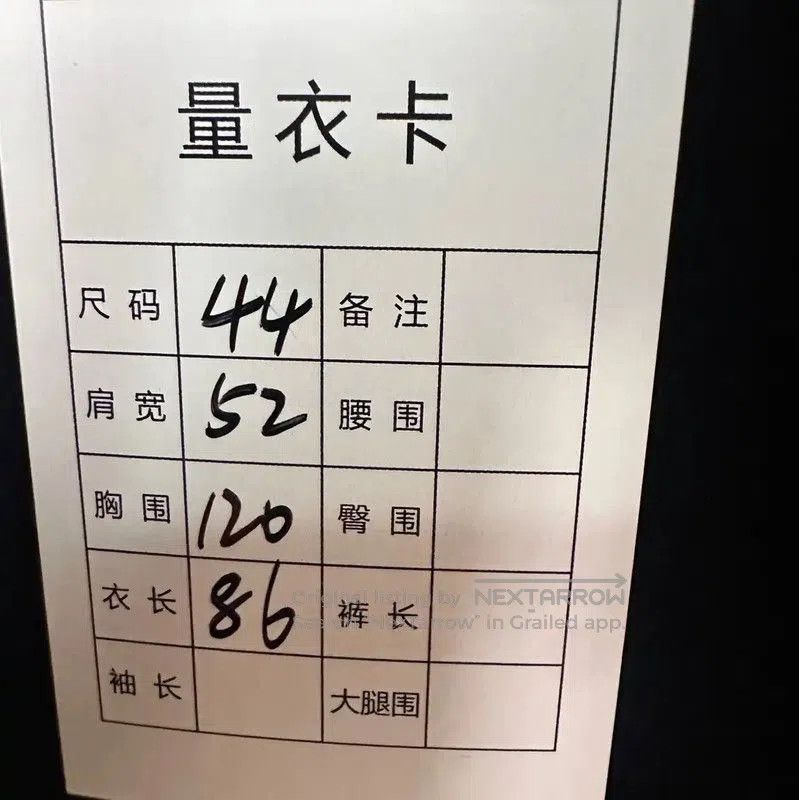 量衣卡
尺码 44 备注
肩宽 52 腰围
胸围 120 臀围
衣长 86 裤长
Original listing by NEXTARROW
"Nextarrow" in Grailed app.
袖长 大腿围